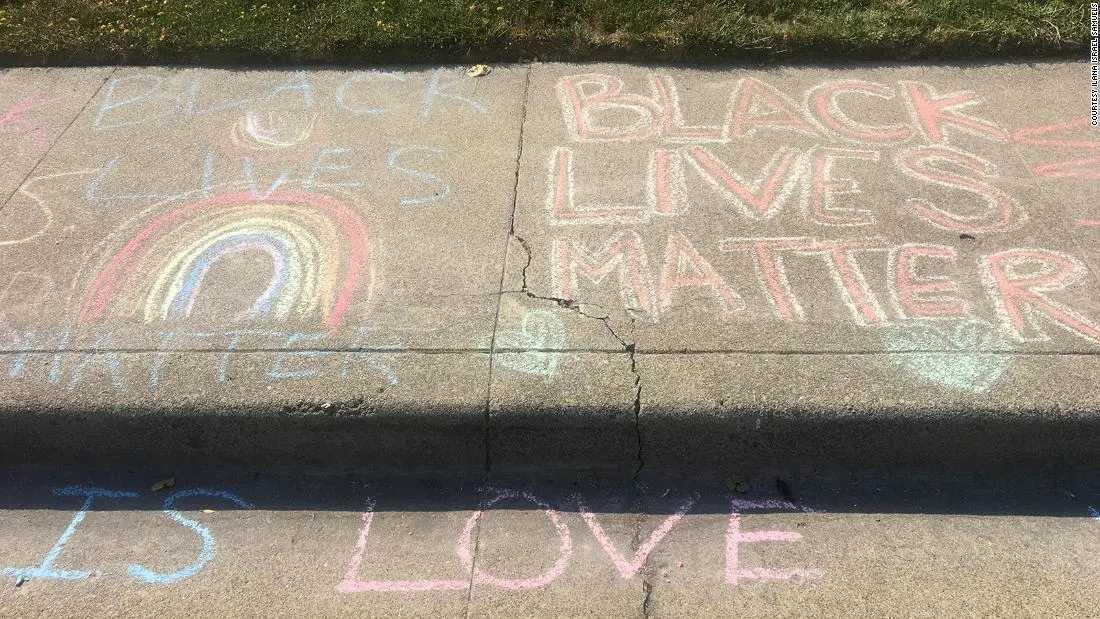 BLACK
LIVES
MATTER
BLACK
LIVES
MATTER
IS LOVE
COURTESY ILANA ISRAEL SAMUELS
CNN